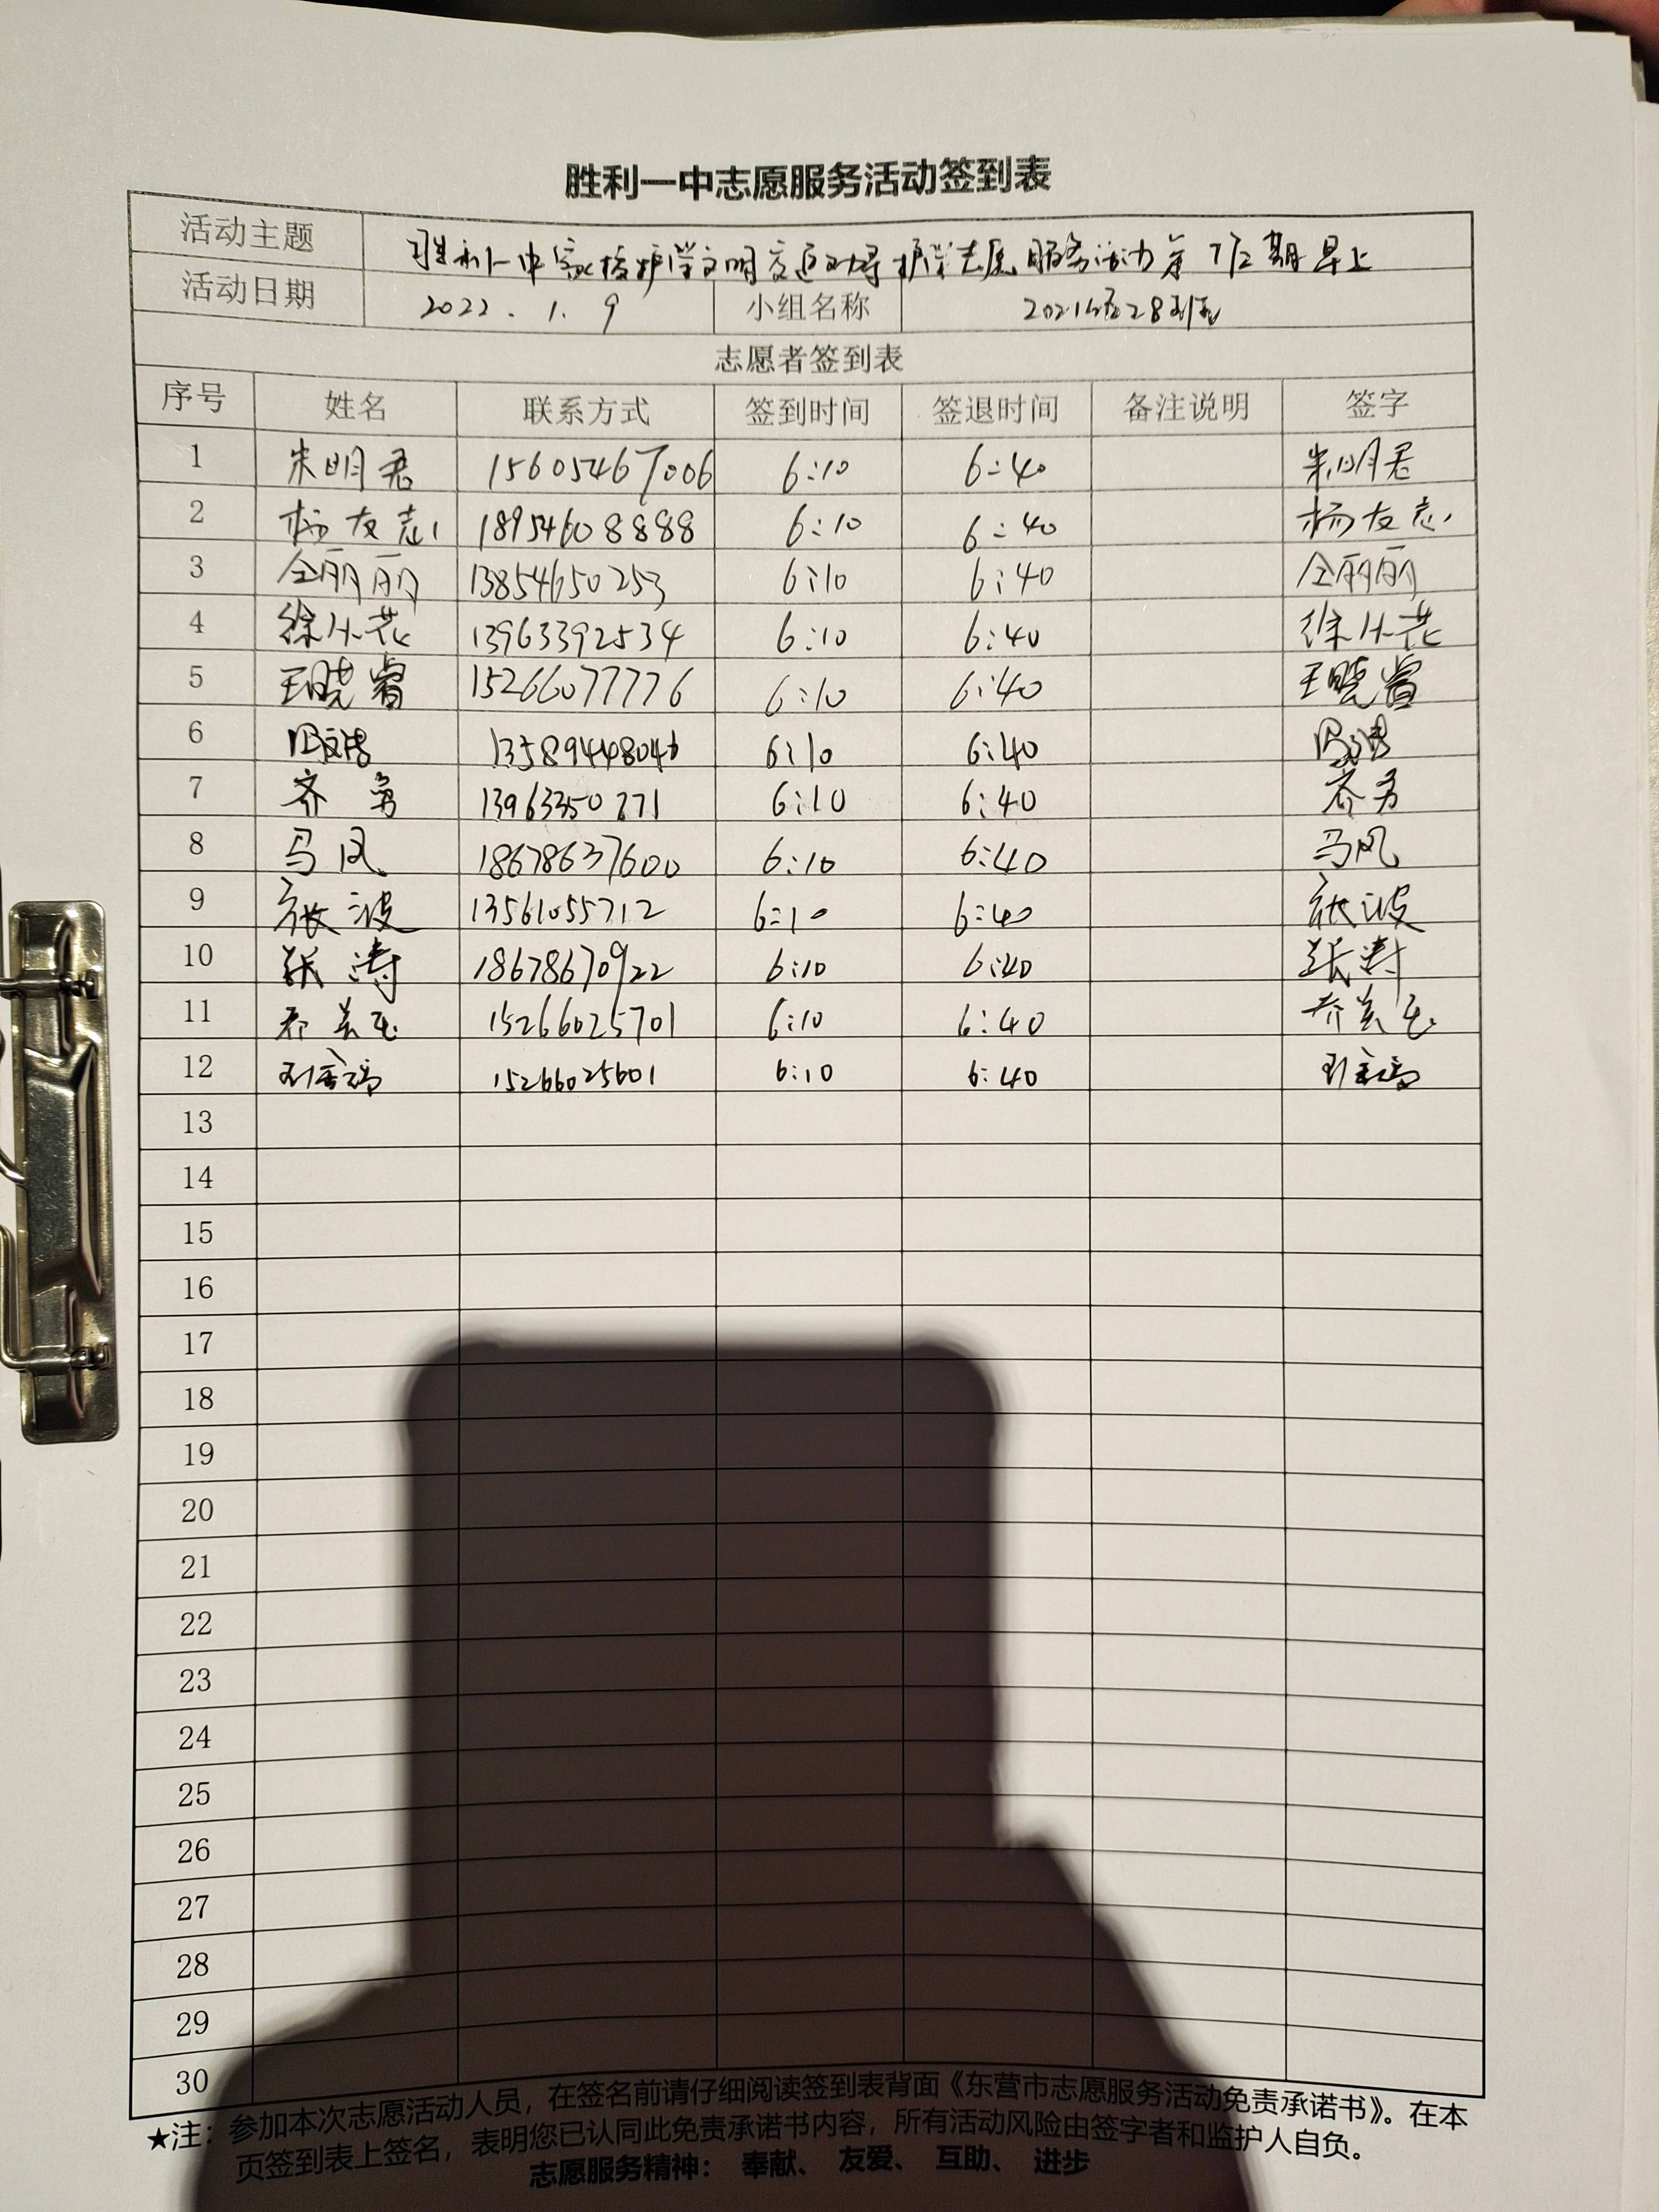 胜利一中志愿服务活动签到表
活动主题 胜利一中家校护学文明交通劝导护学志愿服务活动第 期早上
活动日期 2022.1.9 小组名称 2021级28班
志愿者签到表
序号 姓名 联系方式 签到时间 签退时间 备注说明 签字
1 朱明君 15605467006 6:10 6:40 朱明君
2 杨友志 18954608888 6:10 6:40 杨友志
3 仝丽丽 13854650253 6:10 6:40 仝丽丽
4 徐小花 13963392534 6:10 6:40 徐小花
5 王晓睿 15266077776 6:10 6:40 王晓睿
6 13589448046 6:10 6:40
7 齐勇 13963350271 6:10 6:40 齐勇
8 马风 18678637600 6:10 6:40 马风
9 张波 13561055712 6:10 6:40 张波
10 张涛 18678670922 6:10 6:40 张涛
11 15266025701 6:10 6:40
12 15266025601 6:10 6:40
13
14
15
16
17
18
19
20
21
22
23
24
25
26
27
28
29
30
★注：参加本次志愿活动人员，在签名前请仔细阅读签到表背面《东营市志愿服务活动免责承诺书》。在本
页签到表上签名，表明您已认同此免责承诺书内容，所有活动风险由签字者和监护人自负。
志愿服务精神： 奉献、 友爱、 互助、 进步